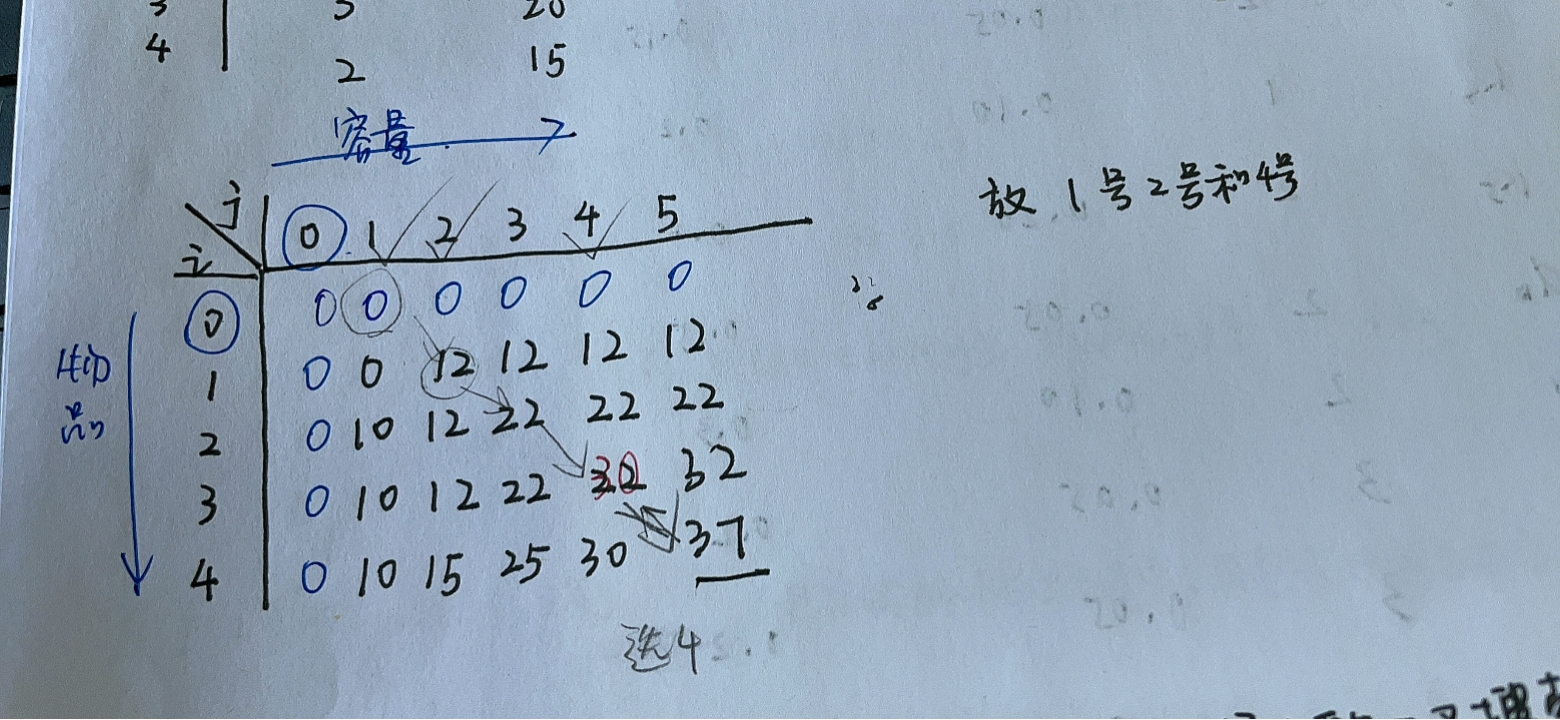 3 3 20
4 2 15
容量
j 0 1 2 3 4 5
i
0 0 0 0 0 0 0
1 0 0 12 12 12 12
2 0 10 12 22 22 22
3 0 10 12 22 30 32
4 0 10 15 25 30 37
物品
选4
放1号2号和4号